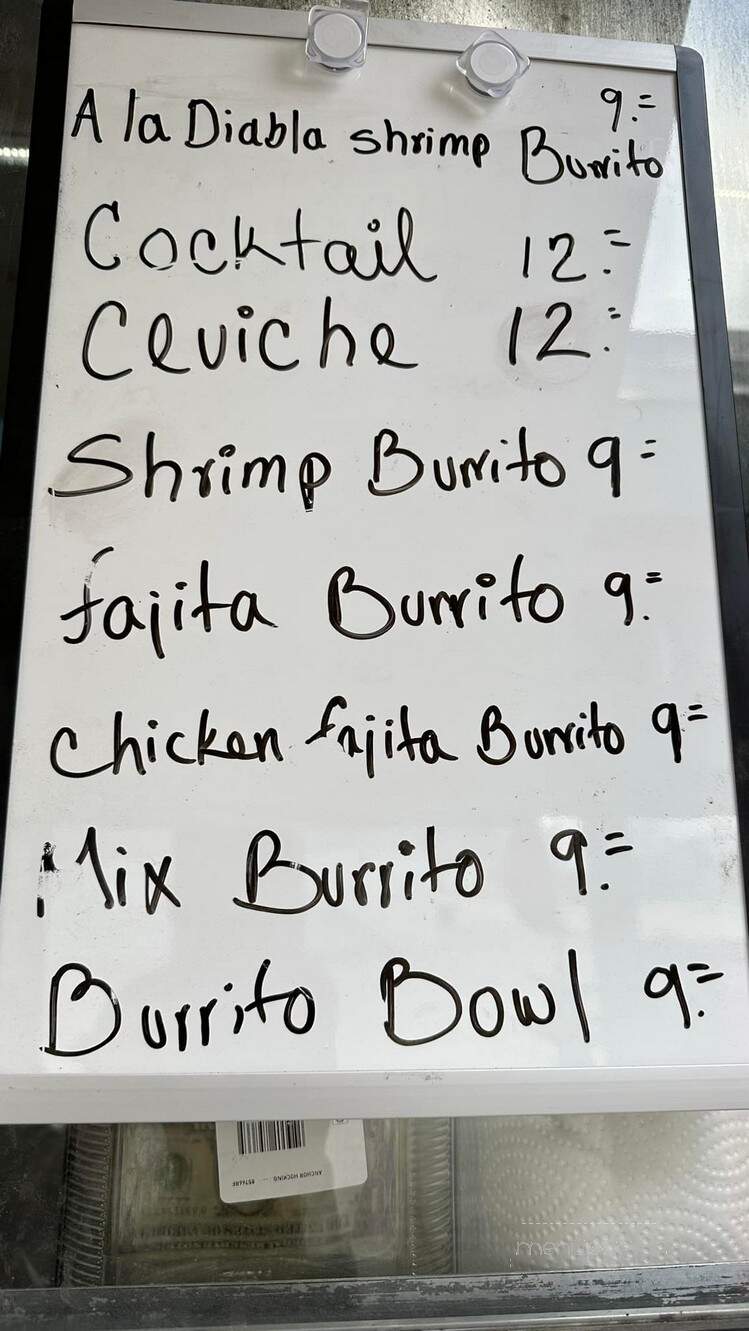 A la Diabla shrimp Burrito 9.=
Cocktail 12.=
Ceviche 12.=
Shrimp Burrito 9=
fajita Burrito 9.=
Chicken fajita Burrito 9=
Mix Burrito 9.=
Burrito Bowl 9.=
ANCHOR HOCKING